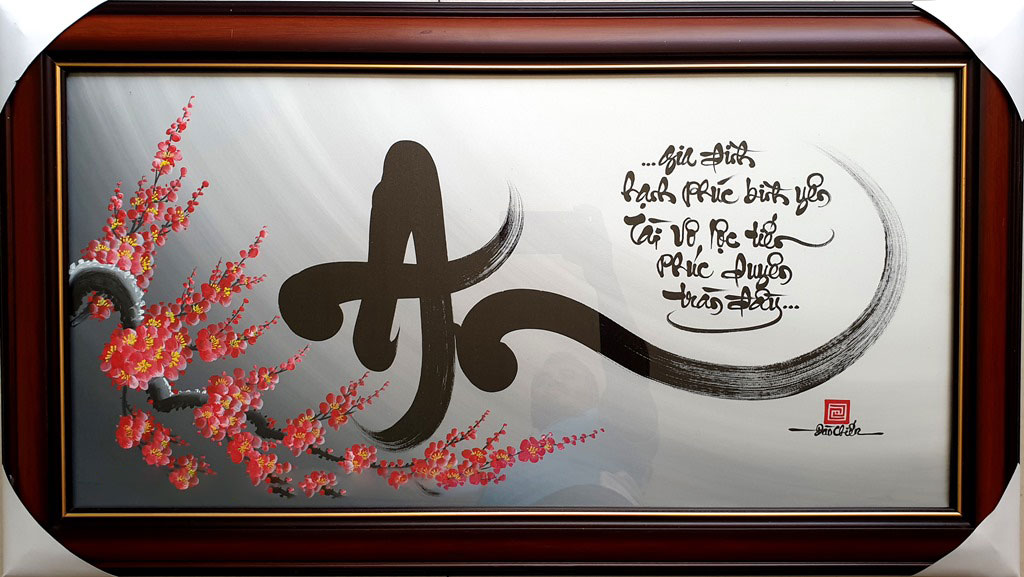 An
...Gia đình
hạnh phúc bình yên
Tài vô, lộc tiến
phúc duyên
tràn đầy...